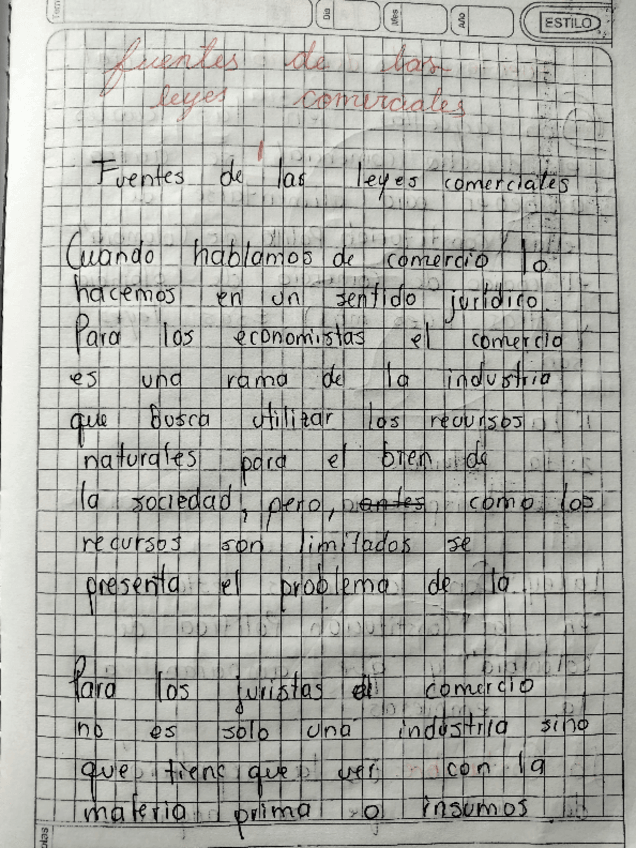 Dia
Mes
Año
ESTILO
fuentes de las
leyes comerciales
Fuentes de las leyes comerciales
Cuando hablamos de comercio lo
hacemos en un sentido jurídico.
Para los economistas el comercio
es una rama de la industria
que busca utilizar los recursos
naturales para el bien de
la sociedad, pero, antes como los
recursos son limitados se
presenta el problema de la
Para los juristas el comercio
no es solo una industria sino
que tiene que ver con la
materia prima o insumos